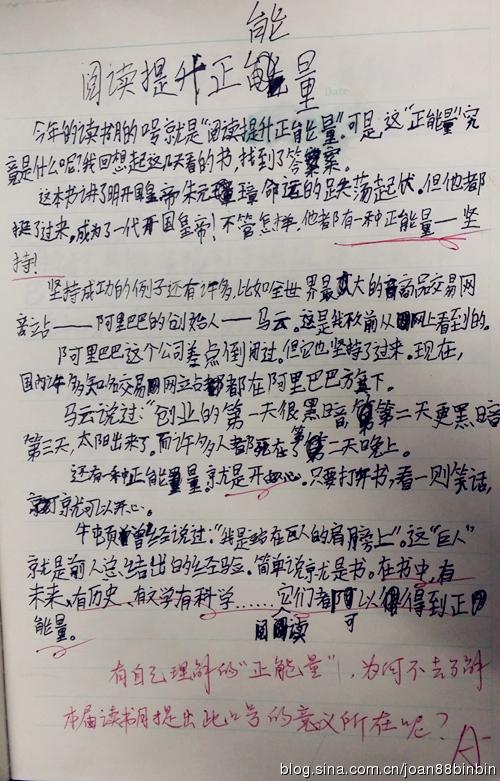 能
阅读提升正能量
今年的读书月的口号就是“阅读提升正能量”。可是这“正能量”究
竟是什么呢？我回想起这几天看的书，找到了答案。
这本书讲了明开国皇帝朱元璋命运的跌荡起伏。但他都
挺了过来。成为了一代开国皇帝！不管怎样，他都有一种正能量——坚
持！
坚持成功的例子还有许多，比如全世界最大的商品交易网
站——阿里巴巴的创始人——马云。这是我不久前从网上看到的。
阿里巴巴这个公司差点倒闭过。但它也坚持了过来。现在，
国内许多知名交易网站都在阿里巴巴旗下。
马云说过：“创业的第一天很黑暗，第二天更黑暗
第三天，太阳出来了。而许多人都死在了第二天晚上。
还有一种正能量就是开心。只要打开书，看一则笑话，
就可以开心。
牛顿曾经说过：“我是站在巨人的肩膀上”。这“巨人”
就是前人总结出的经验。简单说就是书。在书中，有
未来、有历史、有文学有科学……它们都可以得到正
能量。
阅读
可
有自己理解的“正能量”，为何不去了解
本届读书月提出此口号的意义所在呢？
A-
blog.sina.com.cn/joan88binbin